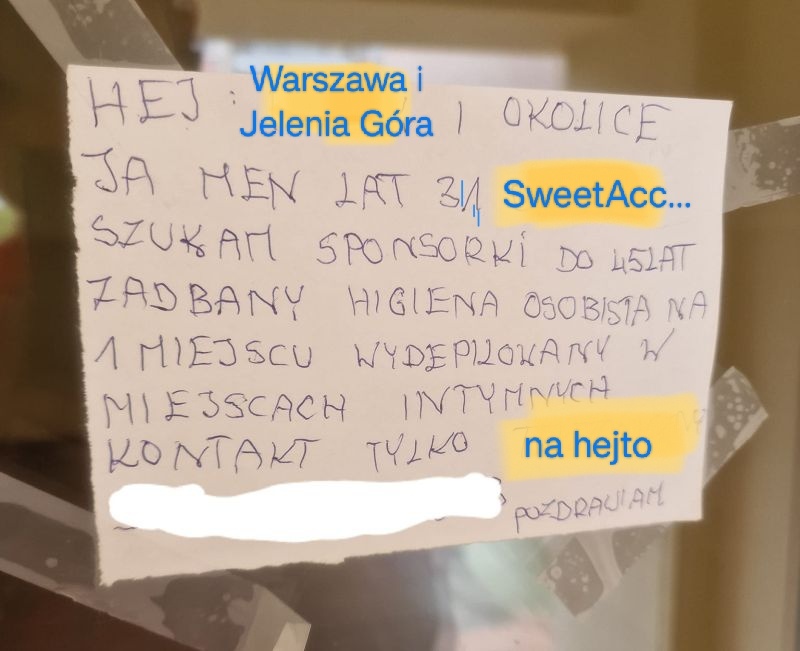 HEJ: Warszawa i
Jelenia Góra I OKOLICE
JA MEN LAT 34 SweetAcc...
SZUKAM SPONSORKI DO 45LAT
ZADBANY HIGIENA OSOBISTA NA
1 MIEJSCU WYDEPILOWANY W
MIEJSCACH INTYMNYCH
KONTAKT TYLKO na hejto
POZDRAWIAM